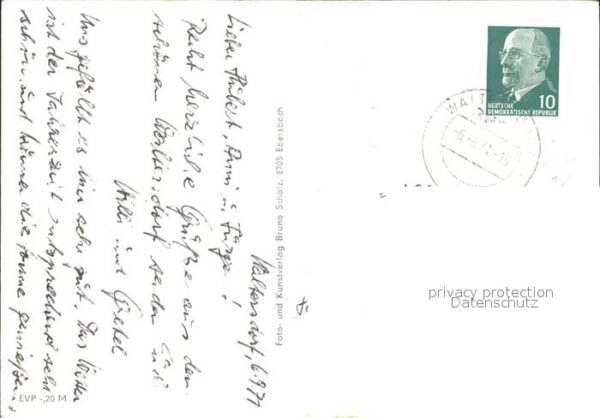 Waltersdorf, 6.9.71
Lieber Hubert, Rumi u. Jürge!
Recht herzliche Grüße aus dem
schönen Waltersdorf senden Euch
Willi und Gretel
Uns gefällt es hier sehr gut. Das Wetter
ist der Jahreszeit entsprechend sehr
schön und können die Sonne genießen.
EVP -,20 M
Foto- und Kunstverlag Bruno Scholz, 8705 Ebersbach
DEUTSCHE
DEMOKRATISCHE REPUBLIK
10
WALT
71-16
privacy protection
Datenschutz